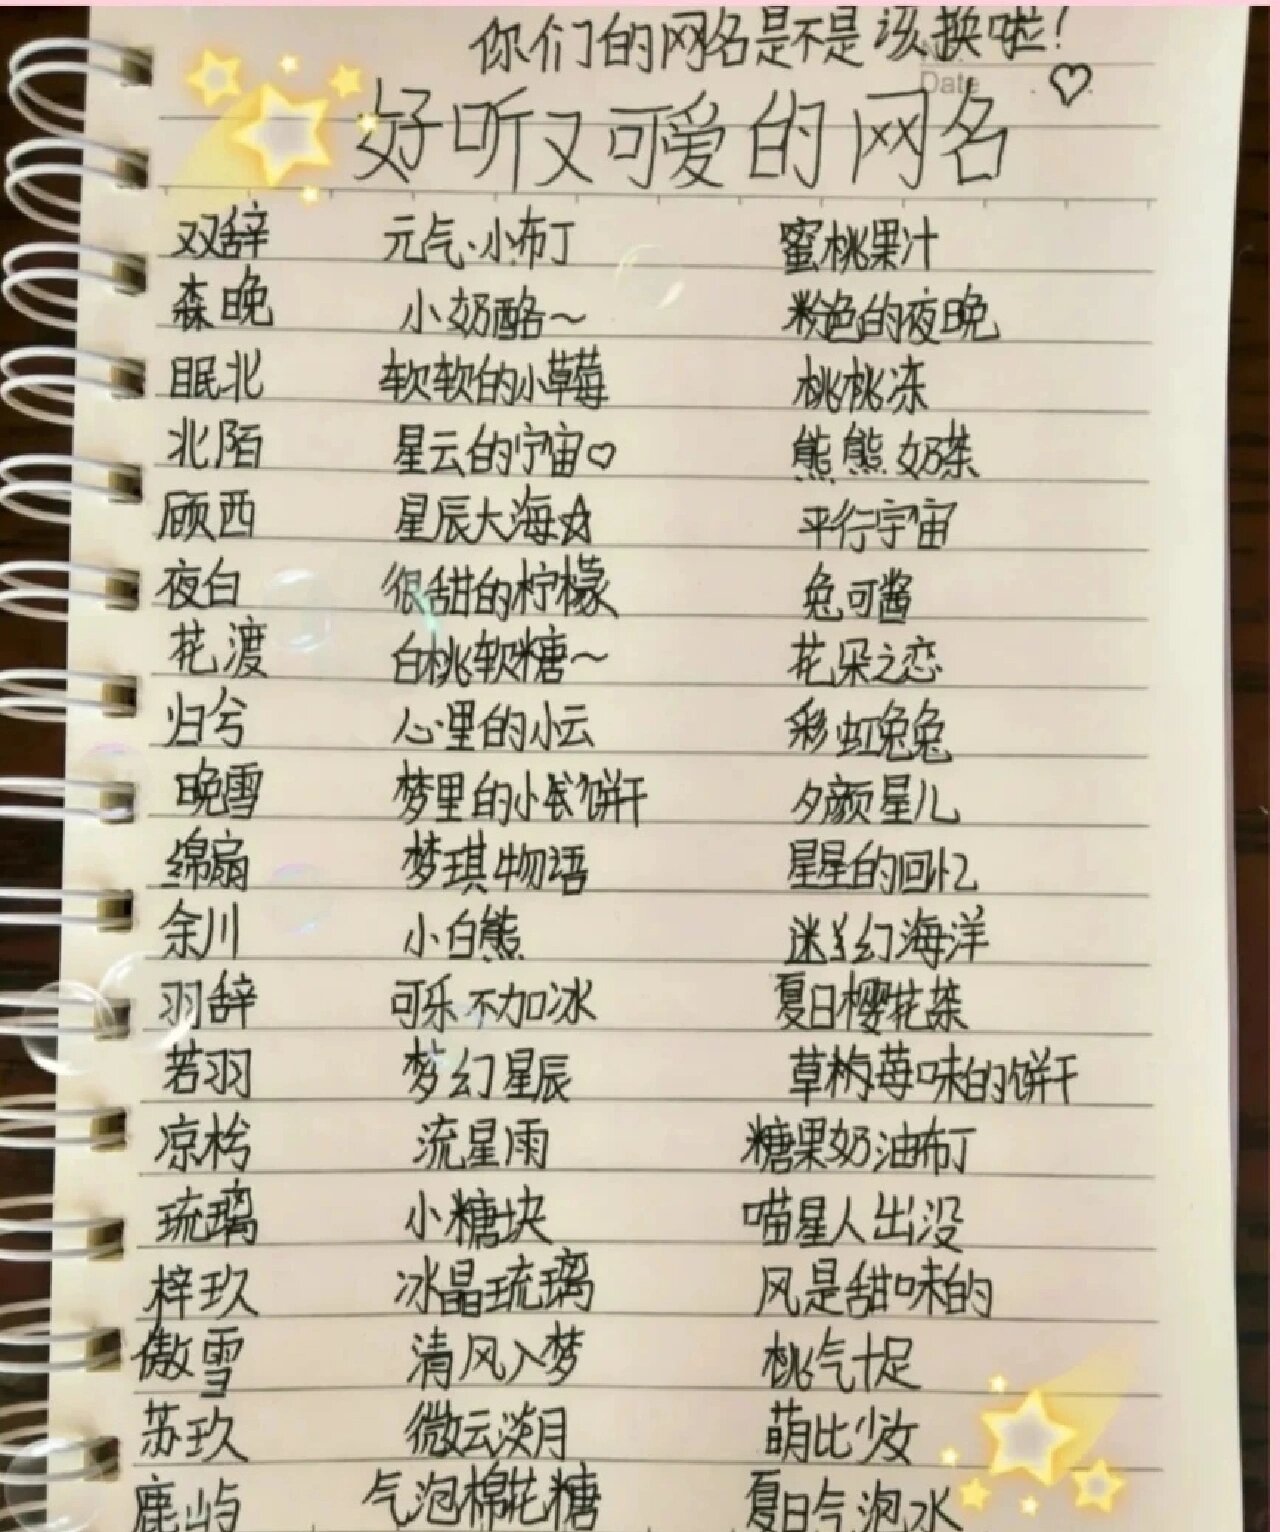 你们的网名是不是该换啦!
Date
好听又可爱的网名 ♡
双辞 元气小布丁 蜜桃果汁
森晚 小奶酪~ 粉色的夜晚
眠北 软软的小草莓 桃桃冻
北陌 星云的宇宙♡ 熊熊奶茶
顾西 星辰大海☆ 平行宇宙
夜白 很甜的柠檬 兔可酱
花渡 白桃软糖~ 花朵之恋
归兮 心里的小云 彩虹兔兔
晚雪 梦里的小饼干 夕颜星儿
绵扇 梦琪物语 星星的回忆
余川 小白熊 迷幻海洋
羽辞 可乐不加冰 夏日樱花茶
若羽 梦幻星辰 草莓味的饼干
凉枍 流星雨 糖果奶油布丁
琉璃 小糖块 喵星人出没
梓玖 冰晶琉璃 风是甜味的
傲雪 清风入梦 桃气十足
苏玖 微云淡月 萌比少女
鹿屿 气泡棉花糖 夏日气泡水